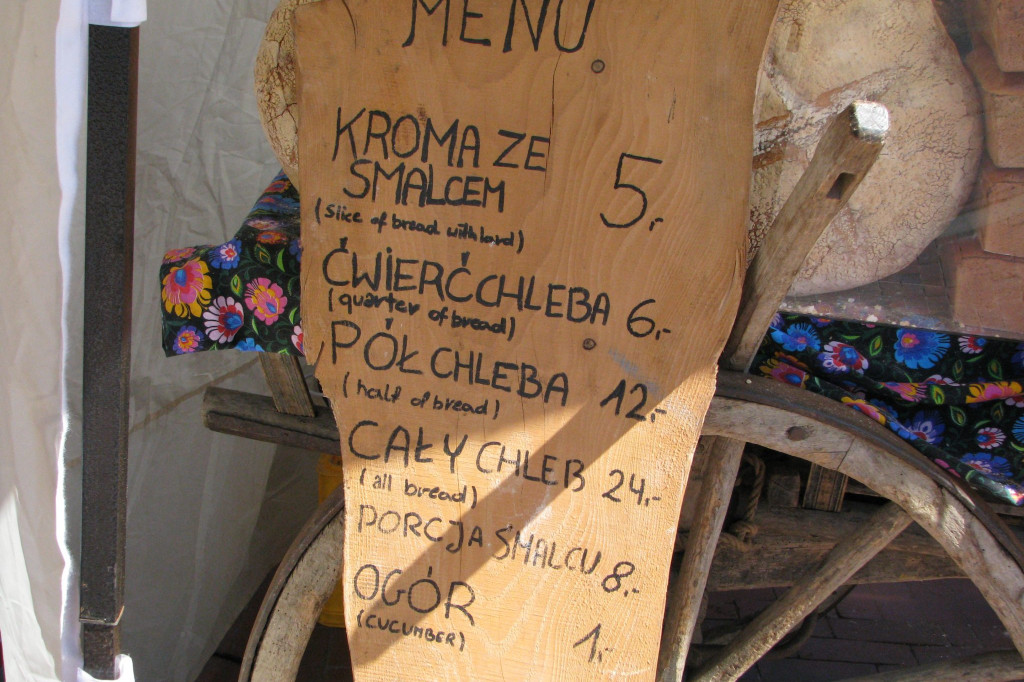 MENU
KROMA ZE
SMALCEM 5,-
(slice of bread with lard)
ĆWIERĆ CHLEBA 6,-
(quarter of bread)
PÓŁ CHLEBA 12,-
(half of bread)
CAŁY CHLEB 24,-
(all bread)
PORCJA SMALCU 8,-
OGÓR
(CUCUMBER) 1,-